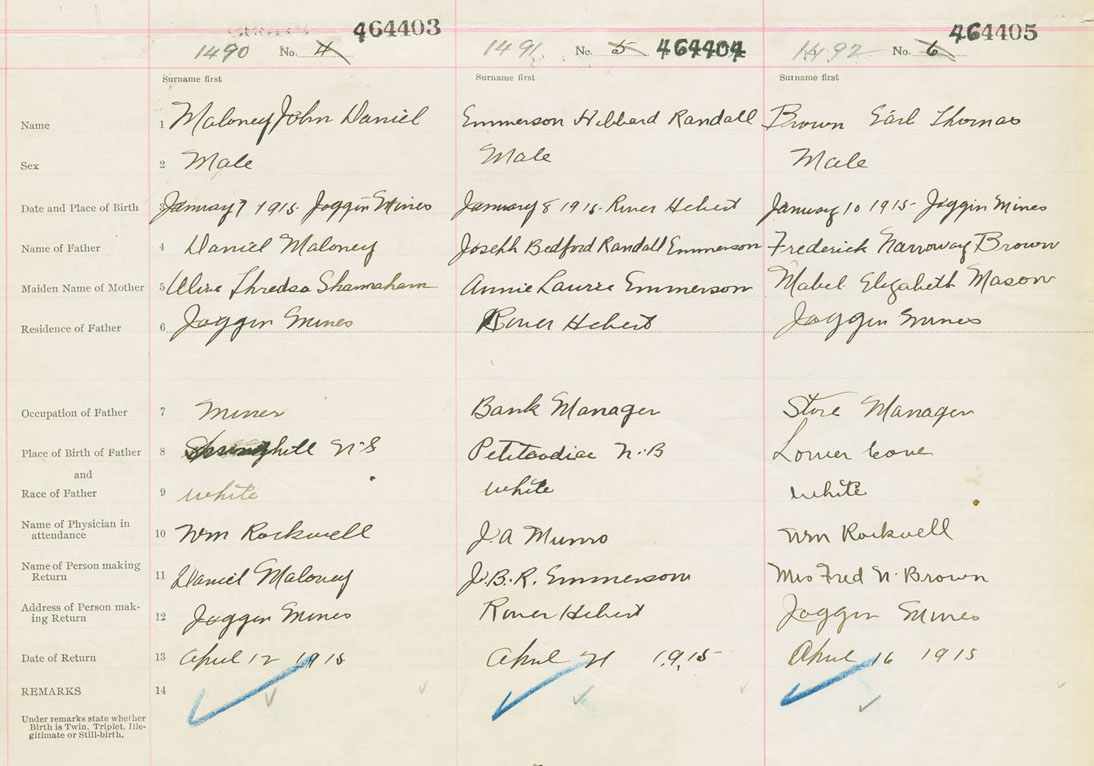 464403 464404 464405
1490 No. 4 1491 No. 5 1492 No. 6
Surname first Surname first Surname first
Name 1 Maloney John Daniel Emmerson Hibbard Randall Brown Earl Thomas
Sex 2 Male Male Male
Date and Place of Birth 3 January 7 1915 Joggin Mines January 8 1915 River Hebert January 10 1915 Joggin Mines
Name of Father 4 Daniel Maloney Joseph Bedford Randall Emmerson Frederick Narroway Brown
Maiden Name of Mother 5 Annie Laurie Emmerson Mabel Elizabeth Mason
Residence of Father 6 Joggin Mines River Hebert Joggin Mines
Occupation of Father 7 Miner Bank Manager Store Manager
Place of Birth of Father 8 Springhill N.S Petitcodiac N.B Lower Cove
and
Race of Father 9 white white white
Name of Physician in
attendance 10 Wm Rockwell J.A Munro Wm Rockwell
Name of Person making
Return 11 Daniel Maloney J.B.R. Emmerson Mrs Fred N. Brown
Address of Person mak-
ing Return 12 Joggin Mines River Hebert Joggin Mines
Date of Return 13 April 12 1915 April 21 1915 April 16 1915
REMARKS 14
Under remarks state whether
Birth is Twin. Triplet. Ille-
gitimate or Still-birth.